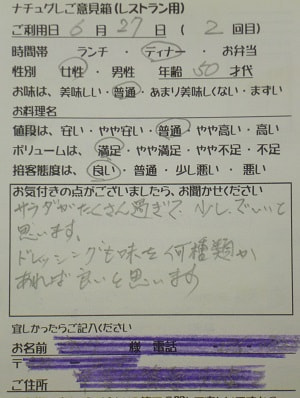 ナチュグしご意見箱(レストラン用)
ご利用日 6 月 27 日 ( 2 回目)
時間帯 ランチ・ディナー・お弁当
性別 女性・男性 年齢 50 才代
お味は、美味しい・普通・あまり美味しくない・まずい
お料理名
値段は、安い・やや安い・普通・やや高い・高い
ボリュームは、満足・やや満足・やや不足・不足
接客態度は、良い・普通・少し悪い・悪い
お気付きの点がございましたら、お聞かせください
サラダがたくさん過ぎて、少しでいいと
思います。
ドレッシングも味を何種類か
あれば良いと思います
宜しかったらご記入ください
お名前 様 電話
〒
ご住所